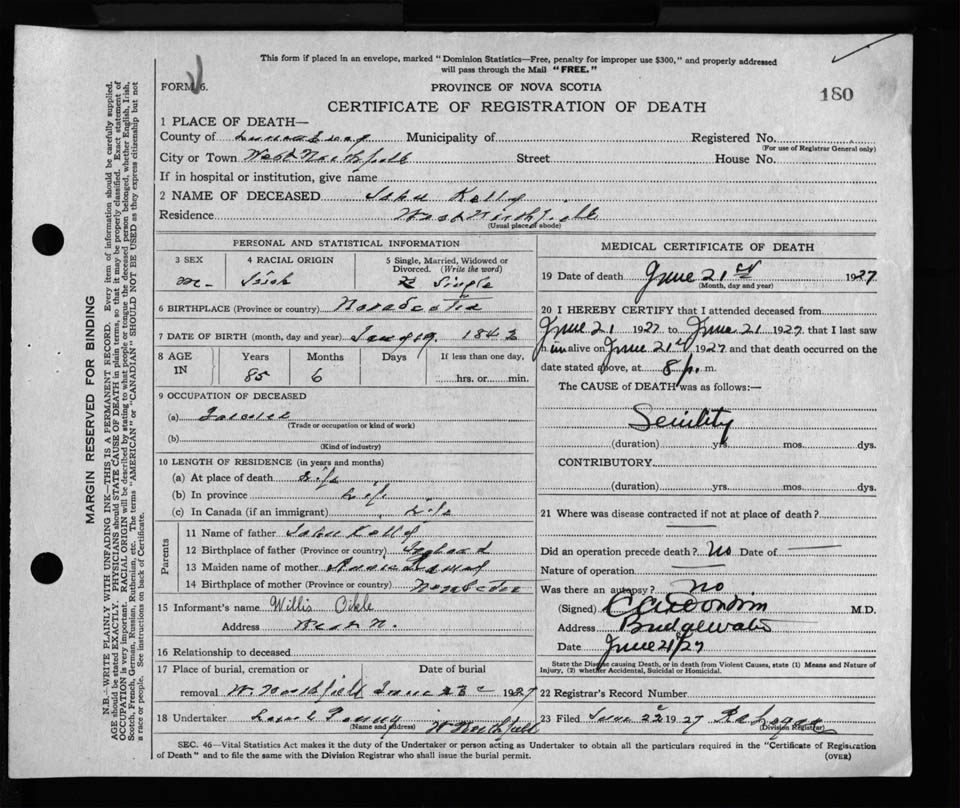 This form if placed in an envelope, marked "Dominion Statistics—Free, penalty for improper use $300," and properly addressed
will pass through the Mail "FREE."
FORM 6.
PROVINCE OF NOVA SCOTIA
180
CERTIFICATE OF REGISTRATION OF DEATH
1 PLACE OF DEATH—
County of Lunenburg Municipality of Registered No.
(For use of Registrar General only)
City or Town West Northfield Street House No.
If in hospital or institution, give name
2 NAME OF DECEASED John Kelly
Residence West Northfield
(Usual place of abode)
PERSONAL AND STATISTICAL INFORMATION
3 SEX 4 RACIAL ORIGIN 5 Single, Married, Widowed or
Divorced. (Write the word)
M- Irish Single
6 BIRTHPLACE (Province or country) Nova Scotia
7 DATE OF BIRTH (month, day and year) 1842
8 AGE Years Months Days If less than one day,
IN 85 6 hrs. or min.
9 OCCUPATION OF DECEASED
(a) Farmer
(Trade or occupation or kind of work)
(b)
(Kind of industry)
10 LENGTH OF RESIDENCE (in years and months)
(a) At place of death Life
(b) In province Life
(c) In Canada (if an immigrant) Life
Parents
11 Name of father John Kelly
12 Birthplace of father (Province or country) Ireland
13 Maiden name of mother
14 Birthplace of mother (Province or country) Nova Scotia
15 Informant's name Willis
Address West N.
16 Relationship to deceased
17 Place of burial, cremation or Date of burial
removal W. Northfield June 23 1927
18 Undertaker W Northfield
(Name and address)
MEDICAL CERTIFICATE OF DEATH
19 Date of death June 21st 1927
(Month, day and year)
20 I HEREBY CERTIFY that I attended deceased from
June 21 1927 to June 21 1927 that I last saw
him alive on June 21st 1927 and that death occurred on the
date stated above, at 8 p. m.
The CAUSE of DEATH was as follows:—
Senility
(duration) yrs. mos. dys.
CONTRIBUTORY
(duration) yrs. mos. dys.
21 Where was disease contracted if not at place of death?
Did an operation precede death? No Date of
Nature of operation
Was there an autopsy? no
(Signed) M.D.
Address Bridgewater
Date June 21/27
State the Disease causing Death, or in death from Violent Causes, state (1) Means and Nature of
Injury, (2) whether Accidental, Suicidal or Homicidal.
22 Registrar's Record Number
23 Filed June 22 1927
(Division Registrar)
SEC. 46—Vital Statistics Act makes it the duty of the Undertaker or person acting as Undertaker to obtain all the particulars required in the "Certificate of Registration
of Death" and to file the same with the Division Registrar who shall issue the burial permit. (OVER)
MARGIN RESERVED FOR BINDING
N.B.—WRITE PLAINLY WITH UNFADING INK—THIS IS A PERMANENT RECORD. Every item of information should be carefully supplied.
AGE should be stated EXACTLY. PHYSICIANS should STATE CAUSE OF DEATH in plain terms, so that it may be properly classified. Exact statement of
OCCUPATION is very important. RACIAL ORIGIN will be described by stating to what people or tongue the deceased person belonged, whether English, Irish,
Scotch, French, German, Russian, Ruthenian, etc. The terms "AMERICAN" or "CANADIAN" SHOULD NOT BE USED as they express citizenship but not
a race or people. See instructions on back of Certificate.